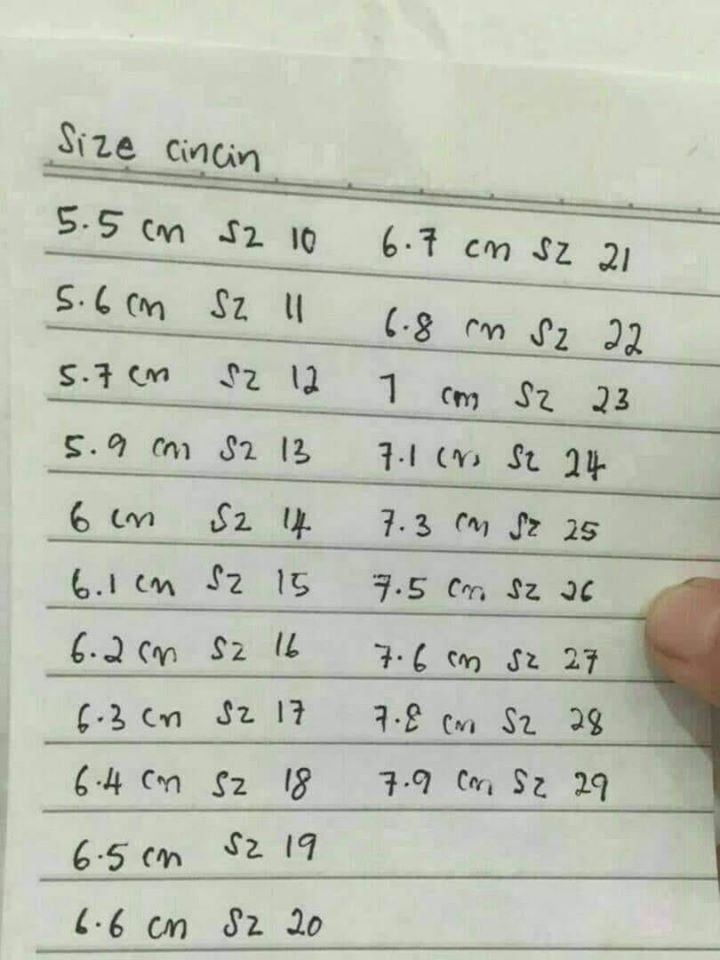 Size cincin
5.5 cm Sz 10
5.6 cm Sz 11
5.7 cm Sz 12
5.9 cm Sz 13
6 cm Sz 14
6.1 cm Sz 15
6.2 cm Sz 16
6.3 cm Sz 17
6.4 cm Sz 18
6.5 cm Sz 19
6.6 cm Sz 20
6.7 cm Sz 21
6.8 cm Sz 22
7 cm Sz 23
7.1 cm Sz 24
7.3 cm Sz 25
7.5 cm Sz 26
7.6 cm Sz 27
7.8 cm Sz 28
7.9 cm Sz 29